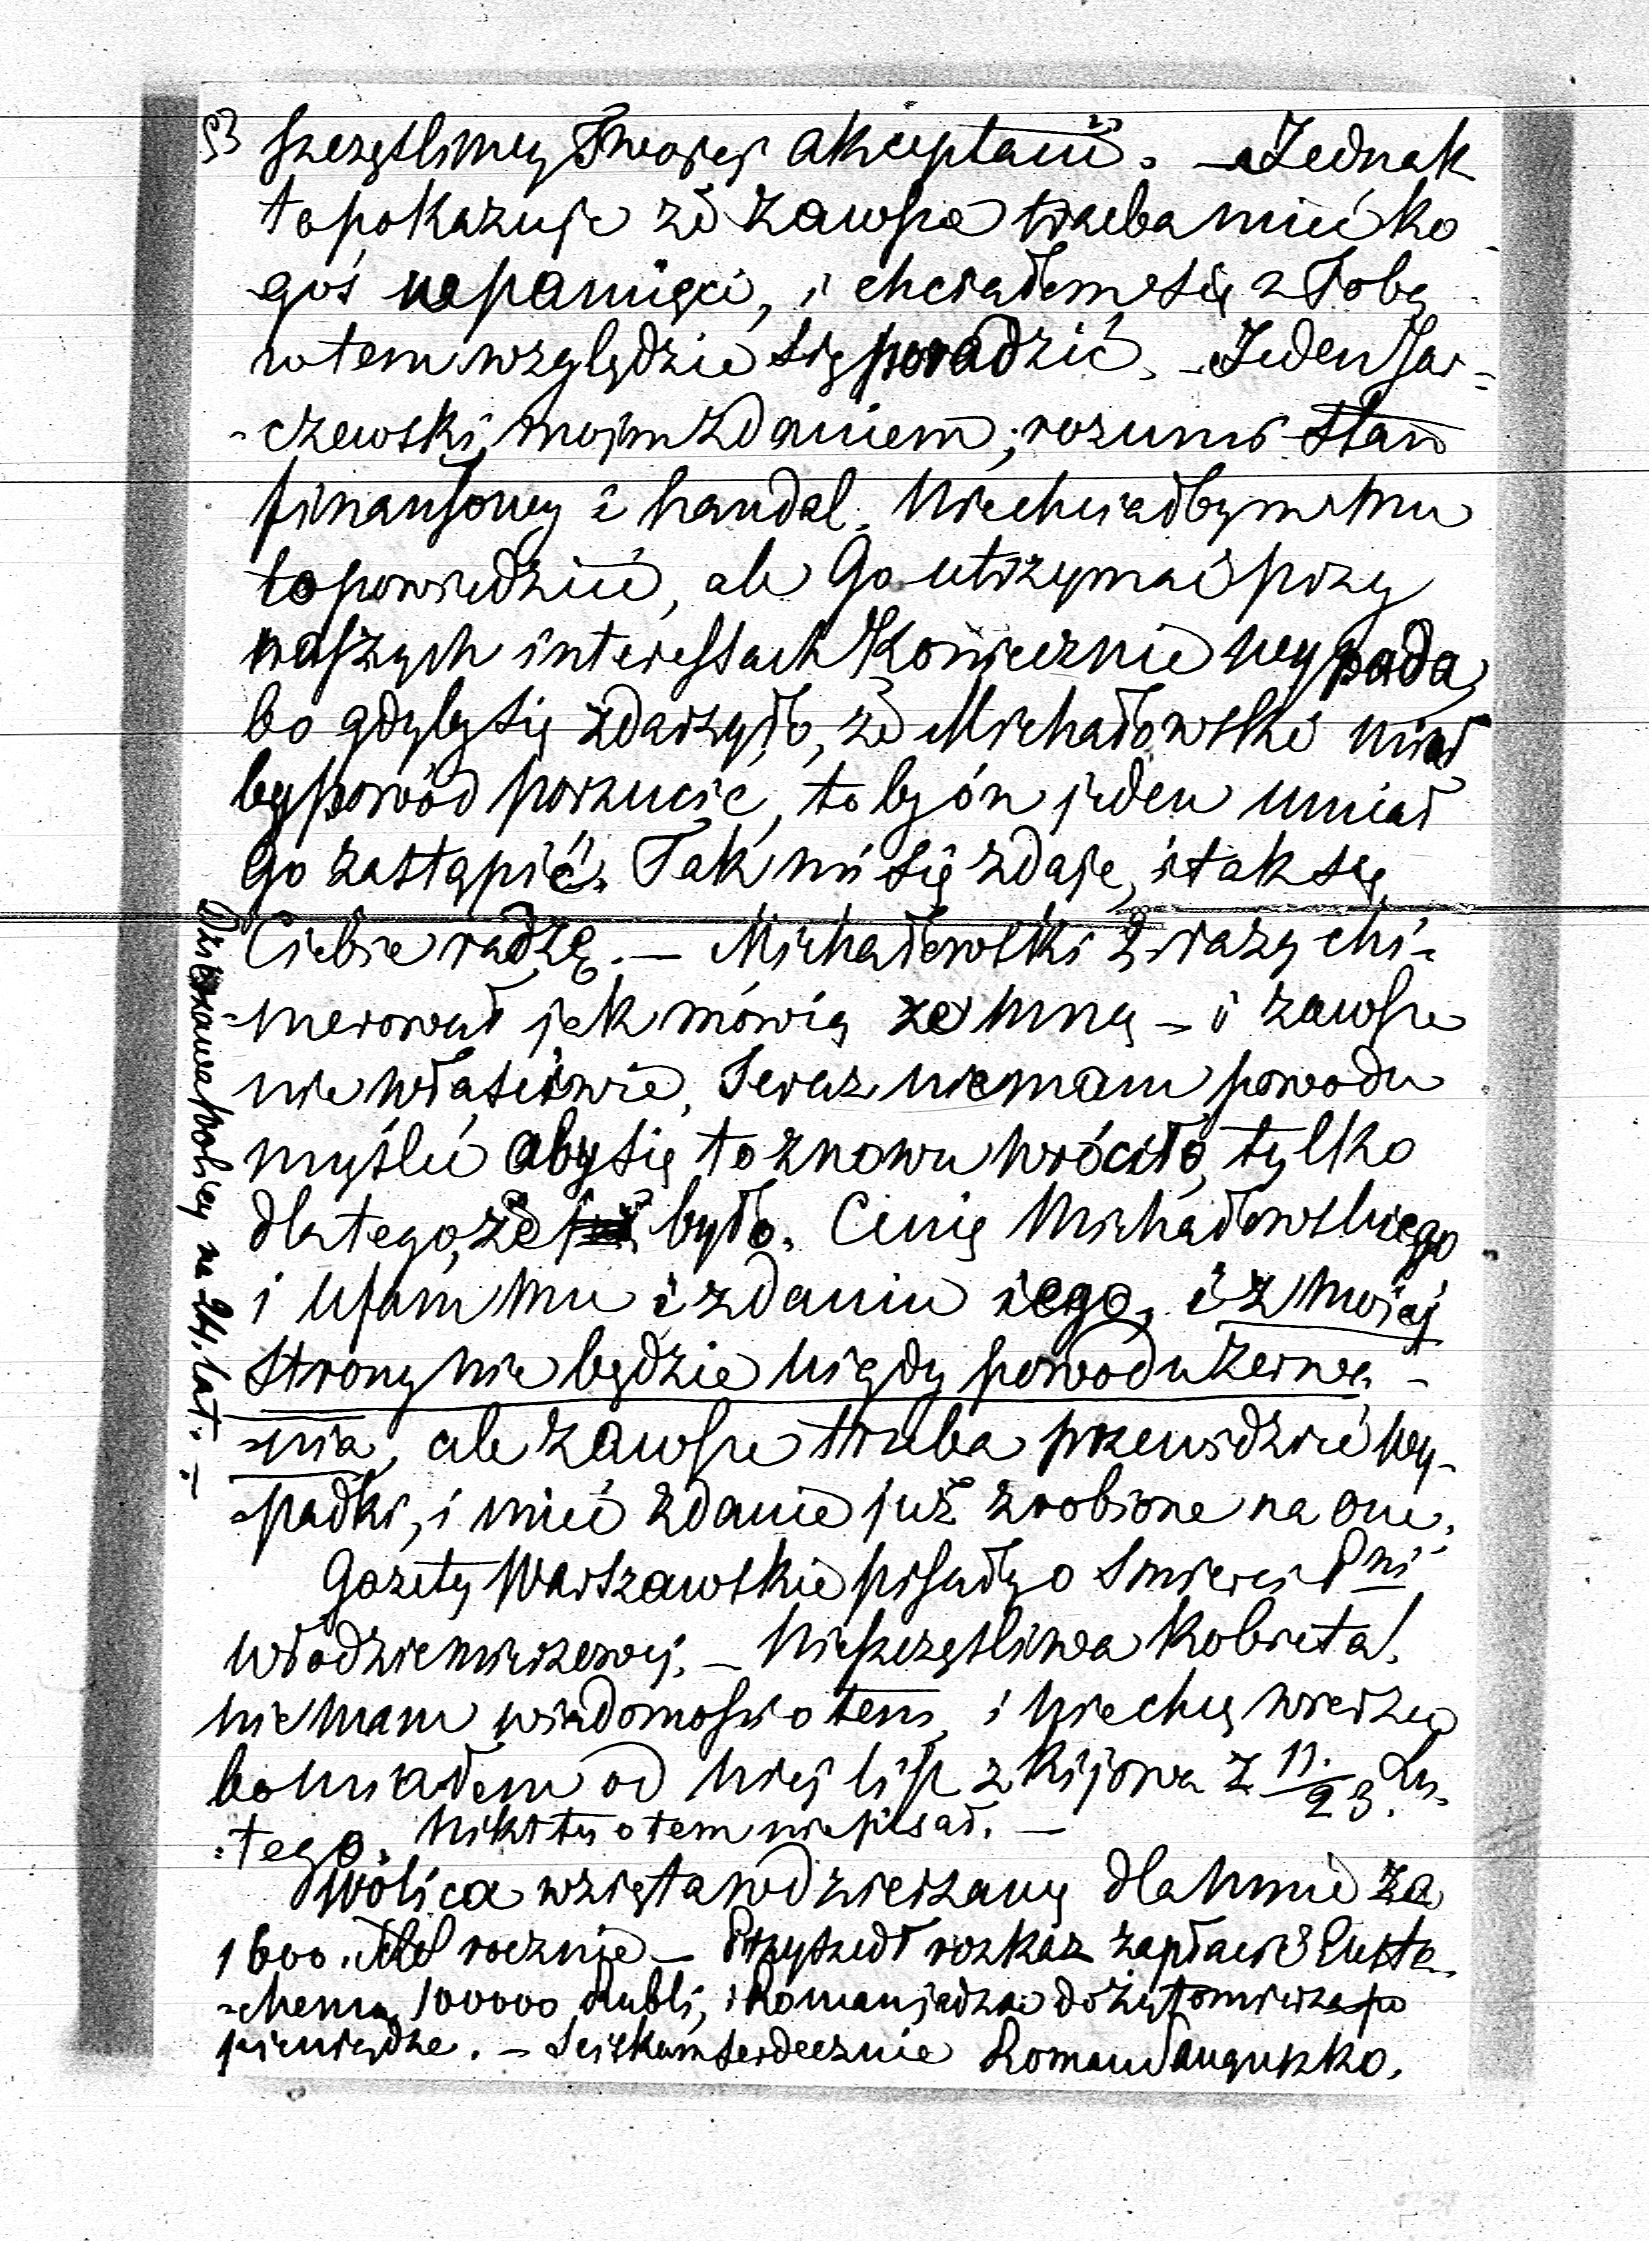 szczęśliwey Twojej akceptacii. — Jednak
to pokazuje że zawsze trzeba mieć ko-
goś na pamięci, i chciałem się z Tobą
w tem względzie się poradzić. — Jeden Jar=
-czewski, mojem zdaniem, rozumié stan
finansowy i handel. Niechciałbym mu
to powiedzieć, ale Go utrzymać przy
naszych interessach koniecznie wypada,
bo gdyby się zdarzyło, że Michałowski miał
by powód porzucić, to by ón jeden umiał
Go zastąpić. Tak mi się zdaje, i tak się
Ciebie radzę. — Michałowski 2 razy chi=
=merował jak mówią ze mną — i zawsze
nie właściwie. Teraz nie mam powodu
myśleć aby się to znowu wróciło, tylko
dlatego, że było. Cenię Michałowskiego
i ufam mu i zdaniu iego, i z moiej
strony nie będzie nigdy powodu zerwa-
=nia, ale zawsze trzeba przewidzieć wy-
=padki, i mieć zdanie już zrobione na one.
Gazety Warszawskie pisały o smierci Pni
Włodzimierzowej. — Nieszczęśliwa kobieta!
nie mam wiadomości o tem, i niechcę wierzyć
bo miałem od niej list z Kijowa z 11/23. Lu=
=tego. Nikt tu o tem nie pisał. —
Wolica wzięta w dzierżawę dla mnie za
1600. rocznie — Przyszedł rozkaz zapłacić Eusta-
=chemu 100000 Rubli, i Roman jedzie do Żytomierza po
pieniądze. — Sciskam serdecznie Roman Sanguszko.
Dzierżawa Wolicy na 24. lat. —